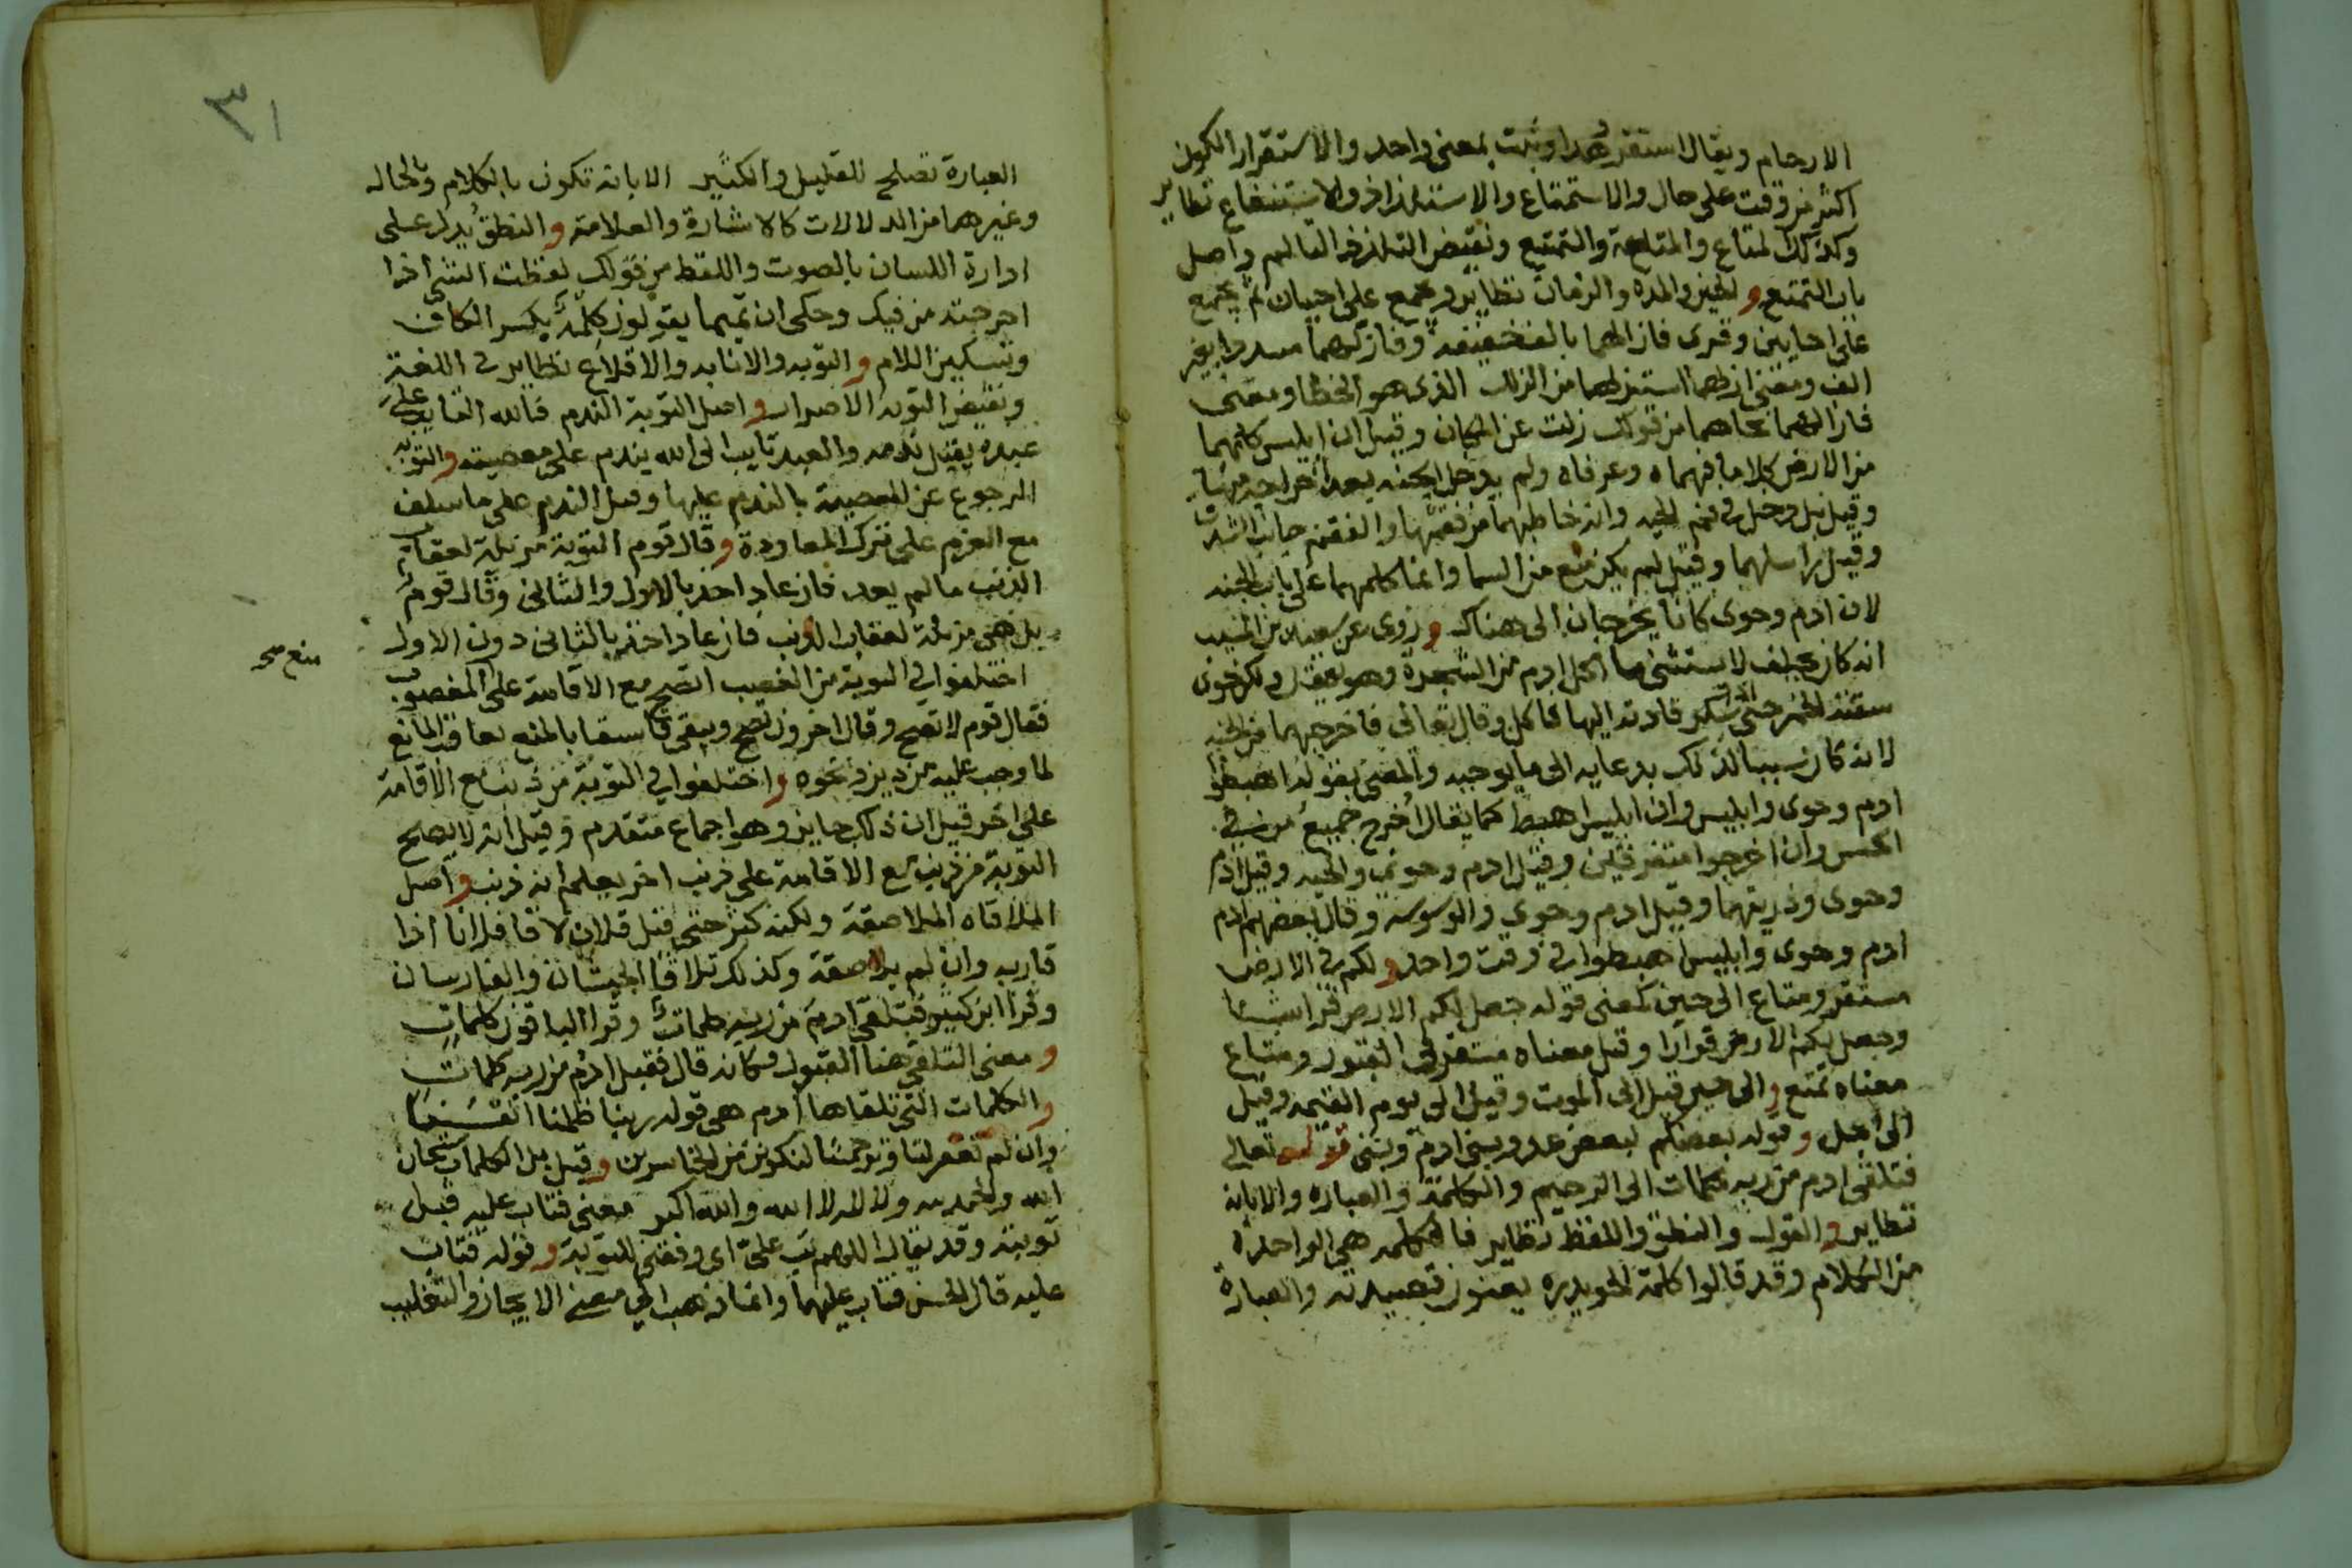 الارحام ويقال استقر هدا وثبت بمعنى واحد والاستقرار الكون
اكثر من وقت على حال والاستمتاع والاستلذاذ والاستنفاع نظاير
وكذلك المتاع والمتاعة والتمتع ونقيض التلذذ التالم واصل
باب التمتع والحين والمدة والزمان نظاير وجمع على احيان ثم يجمع
على احايين وقرى فازالهما بالف خفيفة وفازلهما مسددا بغير
الف ومعنى ازلهما استنزلهما من الزلل الذى هو الخطا ومعنى
فازالهما نحاهما من قولك زلت عن المكان وقيل ان ابليس كلمهما
من الارض كلاما فهماه وعرفاه ولم يدخل الجنه بعد اخراجه منها
وقيل بل دخل فى فم الحيه وانه خاطبهما من فمها والفقم جانب الشدق
وقيل راسلهما وقيل لم يكن منع من السما وانما كلمهما على باب الجنه
لان ادم وحوى كانا يخرجان الى هناك وروى عن سعيد بن المسيب
انه كان يحلف لا يستثنى ما اكل ادم من الشجرة وهو يعقل ولكن حوى
سقته الخمر حتى سكر قادته اليها فاكل وقال تعالى فاخرجهما من الجنه
لانه كان سببا لذلك بدعايه الى ما يوجبه والمعنى بقوله اهبطوا
ادم وحوى وابليس وان ابليس اهبط كما يقال اخرج جميع من فى
الحبس وان اخرجوا متفرقين وقيل ادم وحوى والحيه وقيل ادم
وحوى وذريتهما وقيل ادم وحوى والوسوسه وقال بعضهم ادم
ادم وحوى وابليس اهبطوا فى وقت واحد ولكم فى الارض
مستقر ومتاع الى حين كمعنى قوله جعل لكم الارض فراشا
وجعل لكم الارض قرارا وقيل معناه مستقر فى القبور ومتاع
معناه تمتع والى حين قيل الى الموت وقيل الى يوم القيمه وقيل
الى اجل وقوله بعضكم لبعض عدو وبنى ادم وبنى قوله تعالى
فتلقى ادم من ربه كلمات الى الرحيم والكلمة والعباره والابانه
نظاير والقول والنطق واللفظ نظاير فالكلمه هى الواحدة
من الكلام وقد قالوا كلمة الحويدره يعنون قصيدته والعبارة
٣١
العبارة تصلح للقليل والكثير الابانه تكون بالكلام والحاله
وغيرهما من الدلالات كالاشارة والعلامة والنطق يدل على
ادارة اللسان بالصوت واللفظ من قولك لفظت الشى اذا
اخرجته من فيك وحكى ان تميما يقولون كلمة بكسر الكاف
وتسكين اللام والتوبه والانابه والاقلاع نظاير فى اللغة
ونقيض التوبه الاصرار واصل التوبة الندم فالله التايب على
عبده يقبل ندمه والعبد تايب الى الله يندم على معصيته والتوبه
الرجوع عن المعصية بالندم عليها وقيل الندم على ما سلف
مع العزم على ترك المعاودة وقال قوم التوبة مزيلة لعقاب
الذنب ما لم يعد فان عاد اخذ بالاول والثانى وقال قوم
بل هى مزيلة لعقاب الذنب فان عاد اخذ بالثانى دون الاول
اختلفوا فى التوبة من الغصب اتصح مع الاقامة على المغصوب
منع صح
فقال قوم لا تصح وقال اخرون تصح ويبقى فاسقا بالمنع يعاقب المانع
لما وجب عليه من دين ونحوه واختلفوا فى التوبة من ذنب مع الاقامة
على اخر قيل ان ذلك جايز وهو اجماع متقدم وقيل انه لا يصح
التوبة من ذنب مع الاقامة على ذنب اخر يعلم انه ذنب واصل
الملاقاه الملاصقة ولكنه كثر حتى قيل فلان لاقا فلانا اذا
قاربه وان لم يلاصقه وكذلك تلاقا الجيشان والفارسان
وقرا ابن كثير فتلقى ادم من ربه كلمات وقرا الباقون كلمات
ومعنى التلقى هنا القبول فكانه قال فقبل ادم من ربه كلمات
والكلمات التى تلقاها ادم هى قوله ربنا ظلمنا انفسنا
وان لم تغفر لنا وترحمنا لنكونن من الخاسرين وقيل بل الكلمات سبحان
الله والحمد لله ولا اله الا الله والله اكبر معنى فتاب عليه قبل
توبته وقد يقال اللهم تب على اى وفقنى للتوبة وقوله فتاب
عليه قال الحسن فتاب عليهما وانما ذهب الى معنى الايجاز والتغليب